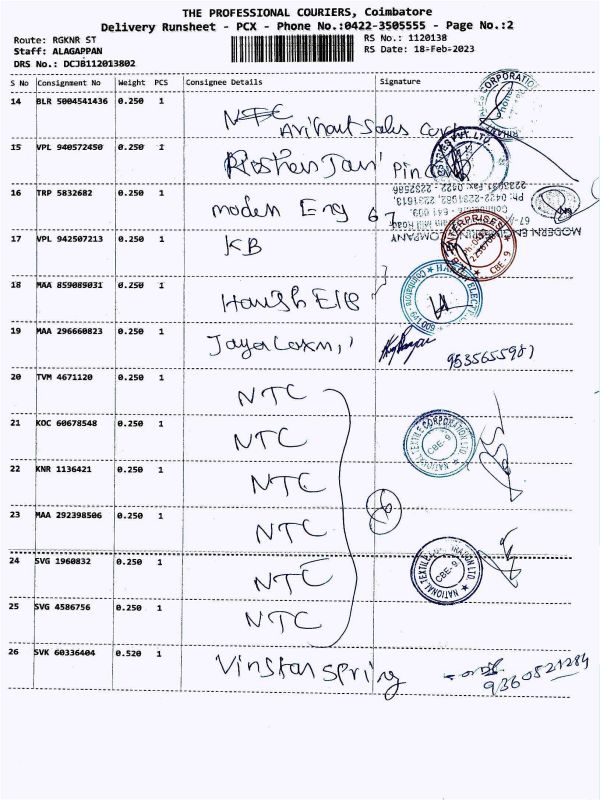 THE PROFESSIONAL COURIERS, Coimbatore
Delivery Runsheet - PCX - Phone No.:0422-3505555 - Page No.:2
Route: RGKNR ST
Staff: ALAGAPPAN
DRS No.: DCJB112013802
RS No.: 1120138
RS Date: 18-Feb-2023
S No Consignment No Weight PCS Consignee Details Signature
14 BLR 5004541436 0.250 1 NTC
Arihant Sales
15 VPL 940572450 0.250 1
16 TRP 5832682 0.250 1 moden Eng 67
17 VPL 942507213 0.250 1 KB
18 MAA 859089031 0.250 1
19 MAA 296660823 0.250 1 9535655987
20 TVM 4671120 0.250 1 NTC
21 KOC 60678548 0.250 1 NTC
NATIONAL TEXTILE CORPORATION LTD. CBE-9
22 KNR 1136421 0.250 1 NTC
23 MAA 292398506 0.250 1 NTC
24 SVG 1960832 0.250 1 NTC
NATIONAL TEXTILE CORPORATION LTD. CBE-9
25 SVG 4586756 0.250 1 NTC
26 SVK 60336404 0.520 1 Vinstar Spring
9360521284